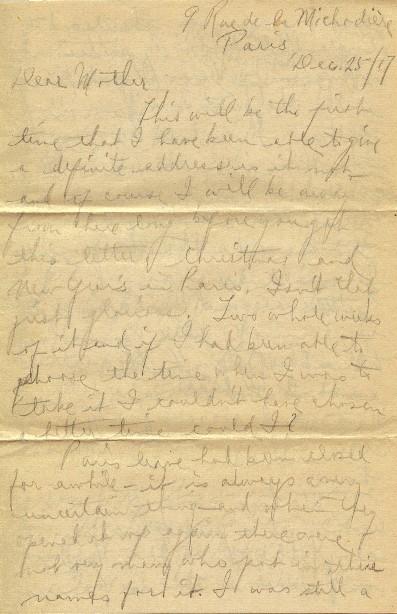 9 Rue de la Michodière
Paris
Dec. 25/17
Dear Mother
This will be the first
time that I have been able to give
a definite address is it not
and of course I will be away
from here long before you get
this letter. Christmas and
New Year's in Paris, Isn't that
just glorious. Two whole weeks
of it and if I had been able to
choose the time when I was to
take it I couldn't have chosen
a better time could I?
Paris leave had been closed
for awhile - it is always a very
uncertain thing and when they
opened it up again there were
not very many who put in their
names for it. I was still a